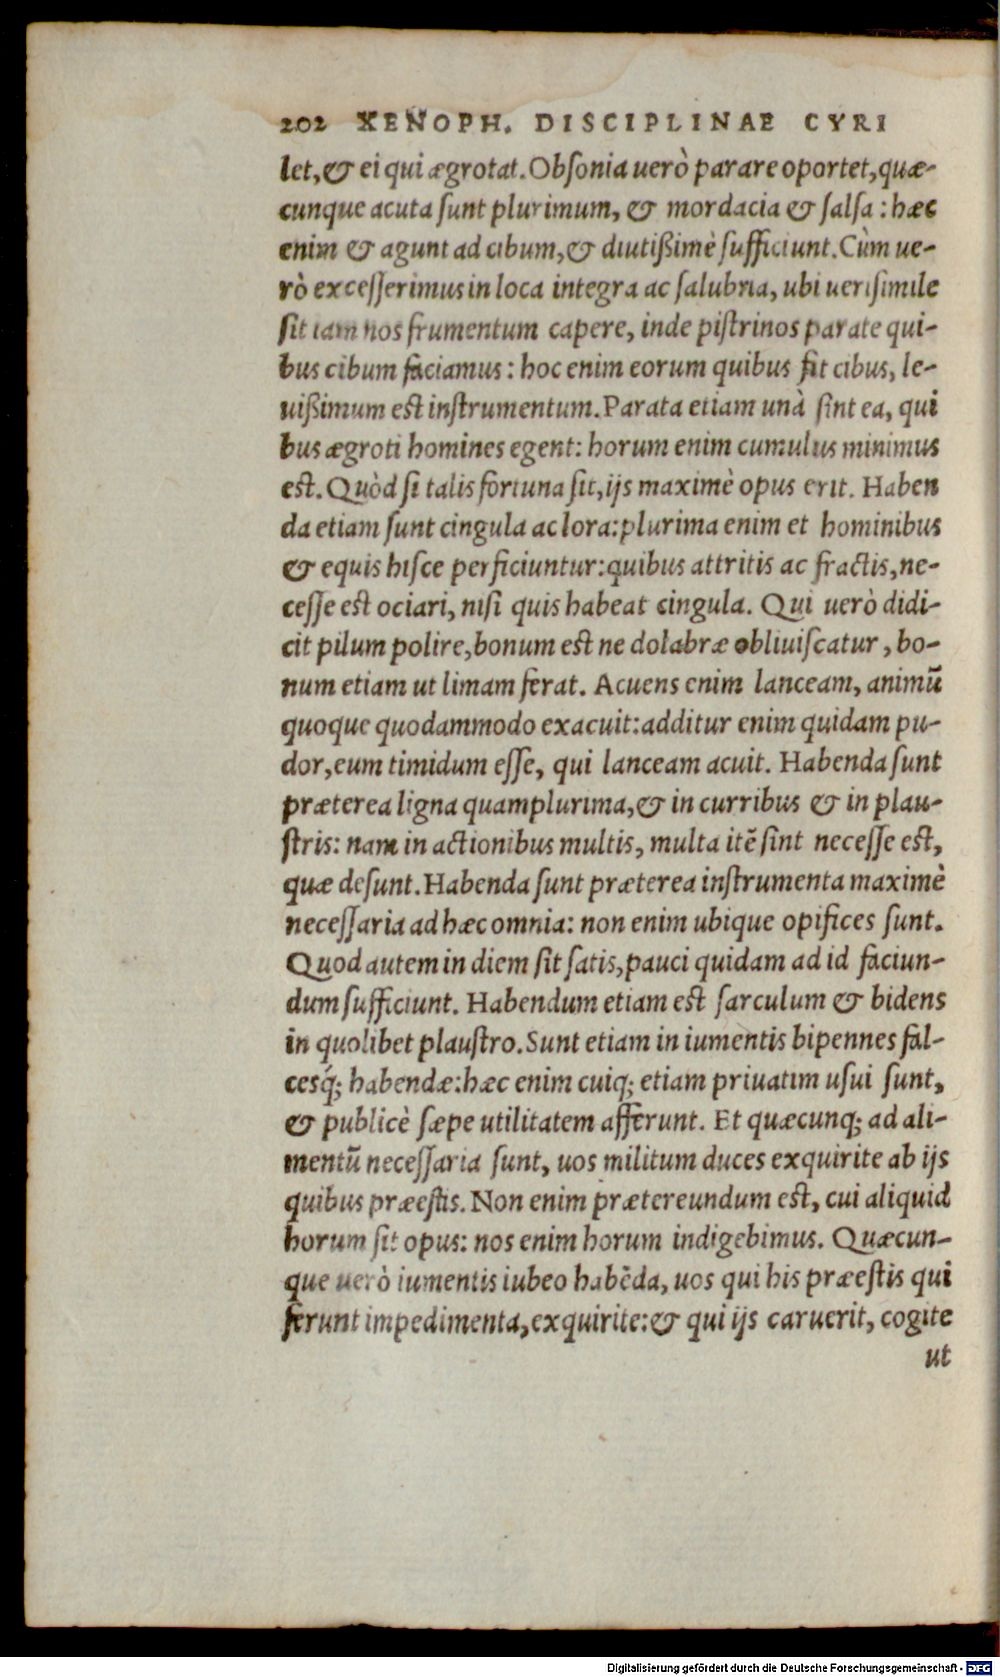 202 XENOPH. DISCIPLINAE CYRI
let, & ei qui ægrotat. Obſonia uerò parare oportet, quæ-
cunque acuta ſunt plurimum, & mordacia & ſalſa : hæc
enim & agunt ad cibum, & diutißimè ſufficiunt. Cùm ue-
rò exceſſerimus in loca integra ac ſalubria, ubi ueriſimile
ſit iam nos frumentum capere, inde piſtrinos parate qui-
bus cibum faciamus : hoc enim eorum quibus fit cibus, le-
uißimum est inſtrumentum. Parata etiam unà ſint ea, qui
bus ægroti homines egent: horum enim cumulus minimus
est. Quòd ſi talis fortuna ſit, ijs maximè opus erit. Haben
da etiam ſunt cingula ac lora: plurima enim et hominibus
& equis hiſce perficiuntur: quibus attritis ac fractis, ne-
ceſſe est ociari, niſi quis habeat cingula. Qui uerò didi-
cit pilum polire, bonum est ne dolabræ obliuiſcatur, bo-
num etiam ut limam ferat. Acuens enim lanceam, animū
quoque quodammodo exacuit: additur enim quidam pu-
dor, eum timidum eſſe, qui lanceam acuit. Habenda ſunt
præterea ligna quamplurima, & in curribus & in plau-
ſtris: nam in actionibus multis, multa itē ſint neceſſe est,
quæ deſunt. Habenda ſunt præterea inſtrumenta maximè
neceſſaria ad hæc omnia: non enim ubique opifices ſunt.
Quod autem in diem ſit ſatis, pauci quidam ad id faciun-
dum ſufficiunt. Habendum etiam est ſarculum & bidens
in quolibet plauſtro. Sunt etiam in iumentis bipennes fal-
cesq́; habendæ: hæc enim cuiq; etiam priuatim uſui ſunt,
& publicè ſæpe utilitatem afferunt. Et quæcunq; ad ali-
mentū neceſſaria ſunt, uos militum duces exquirite ab ijs
quibus præeſtis. Non enim prætereundum est, cui aliquid
horum ſit opus: nos enim horum indigebimus. Quæcun-
que uerò iumentis iubeo habēda, uos qui his præeſtis qui
ferunt impedimenta, exquirite: & qui ijs caruerit, cogite
ut
Digitalisierung gefördert durch die Deutsche Forschungsgemeinschaft - DFG